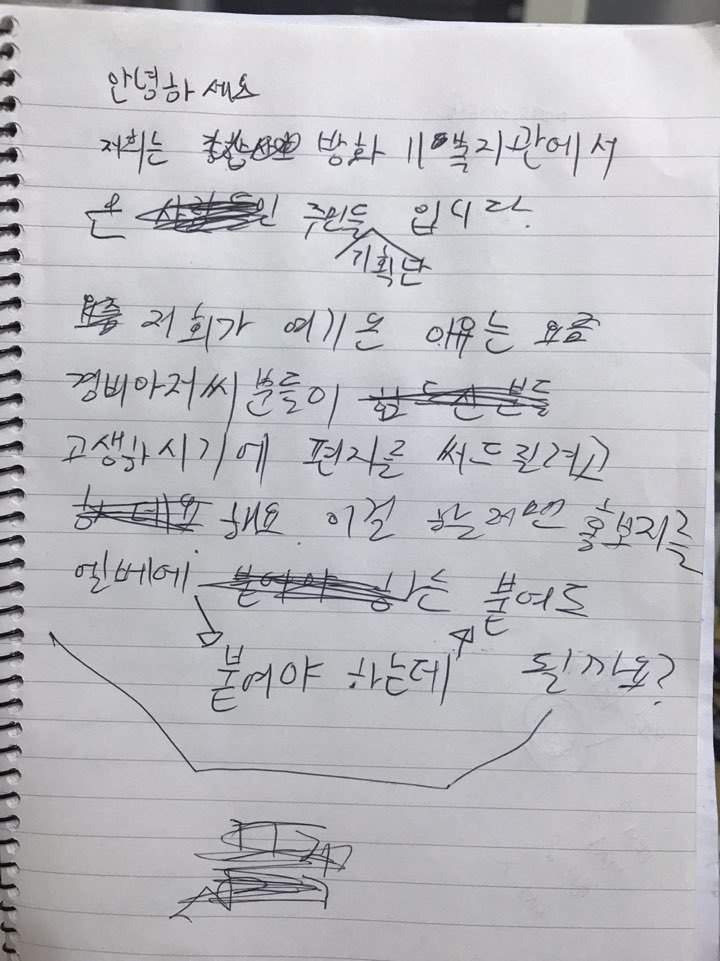 안녕하세요
저희는 방화 11복지관에서
온 주민들 입니다.
기획단
저희가 여기온 이유는 요즘
경비아저씨 분들이
고생하시기에 편지를 써드릴려고
해요 이걸 할려면 홍보지를
엘베에 붙여도
붙여야 하는데 될까요?